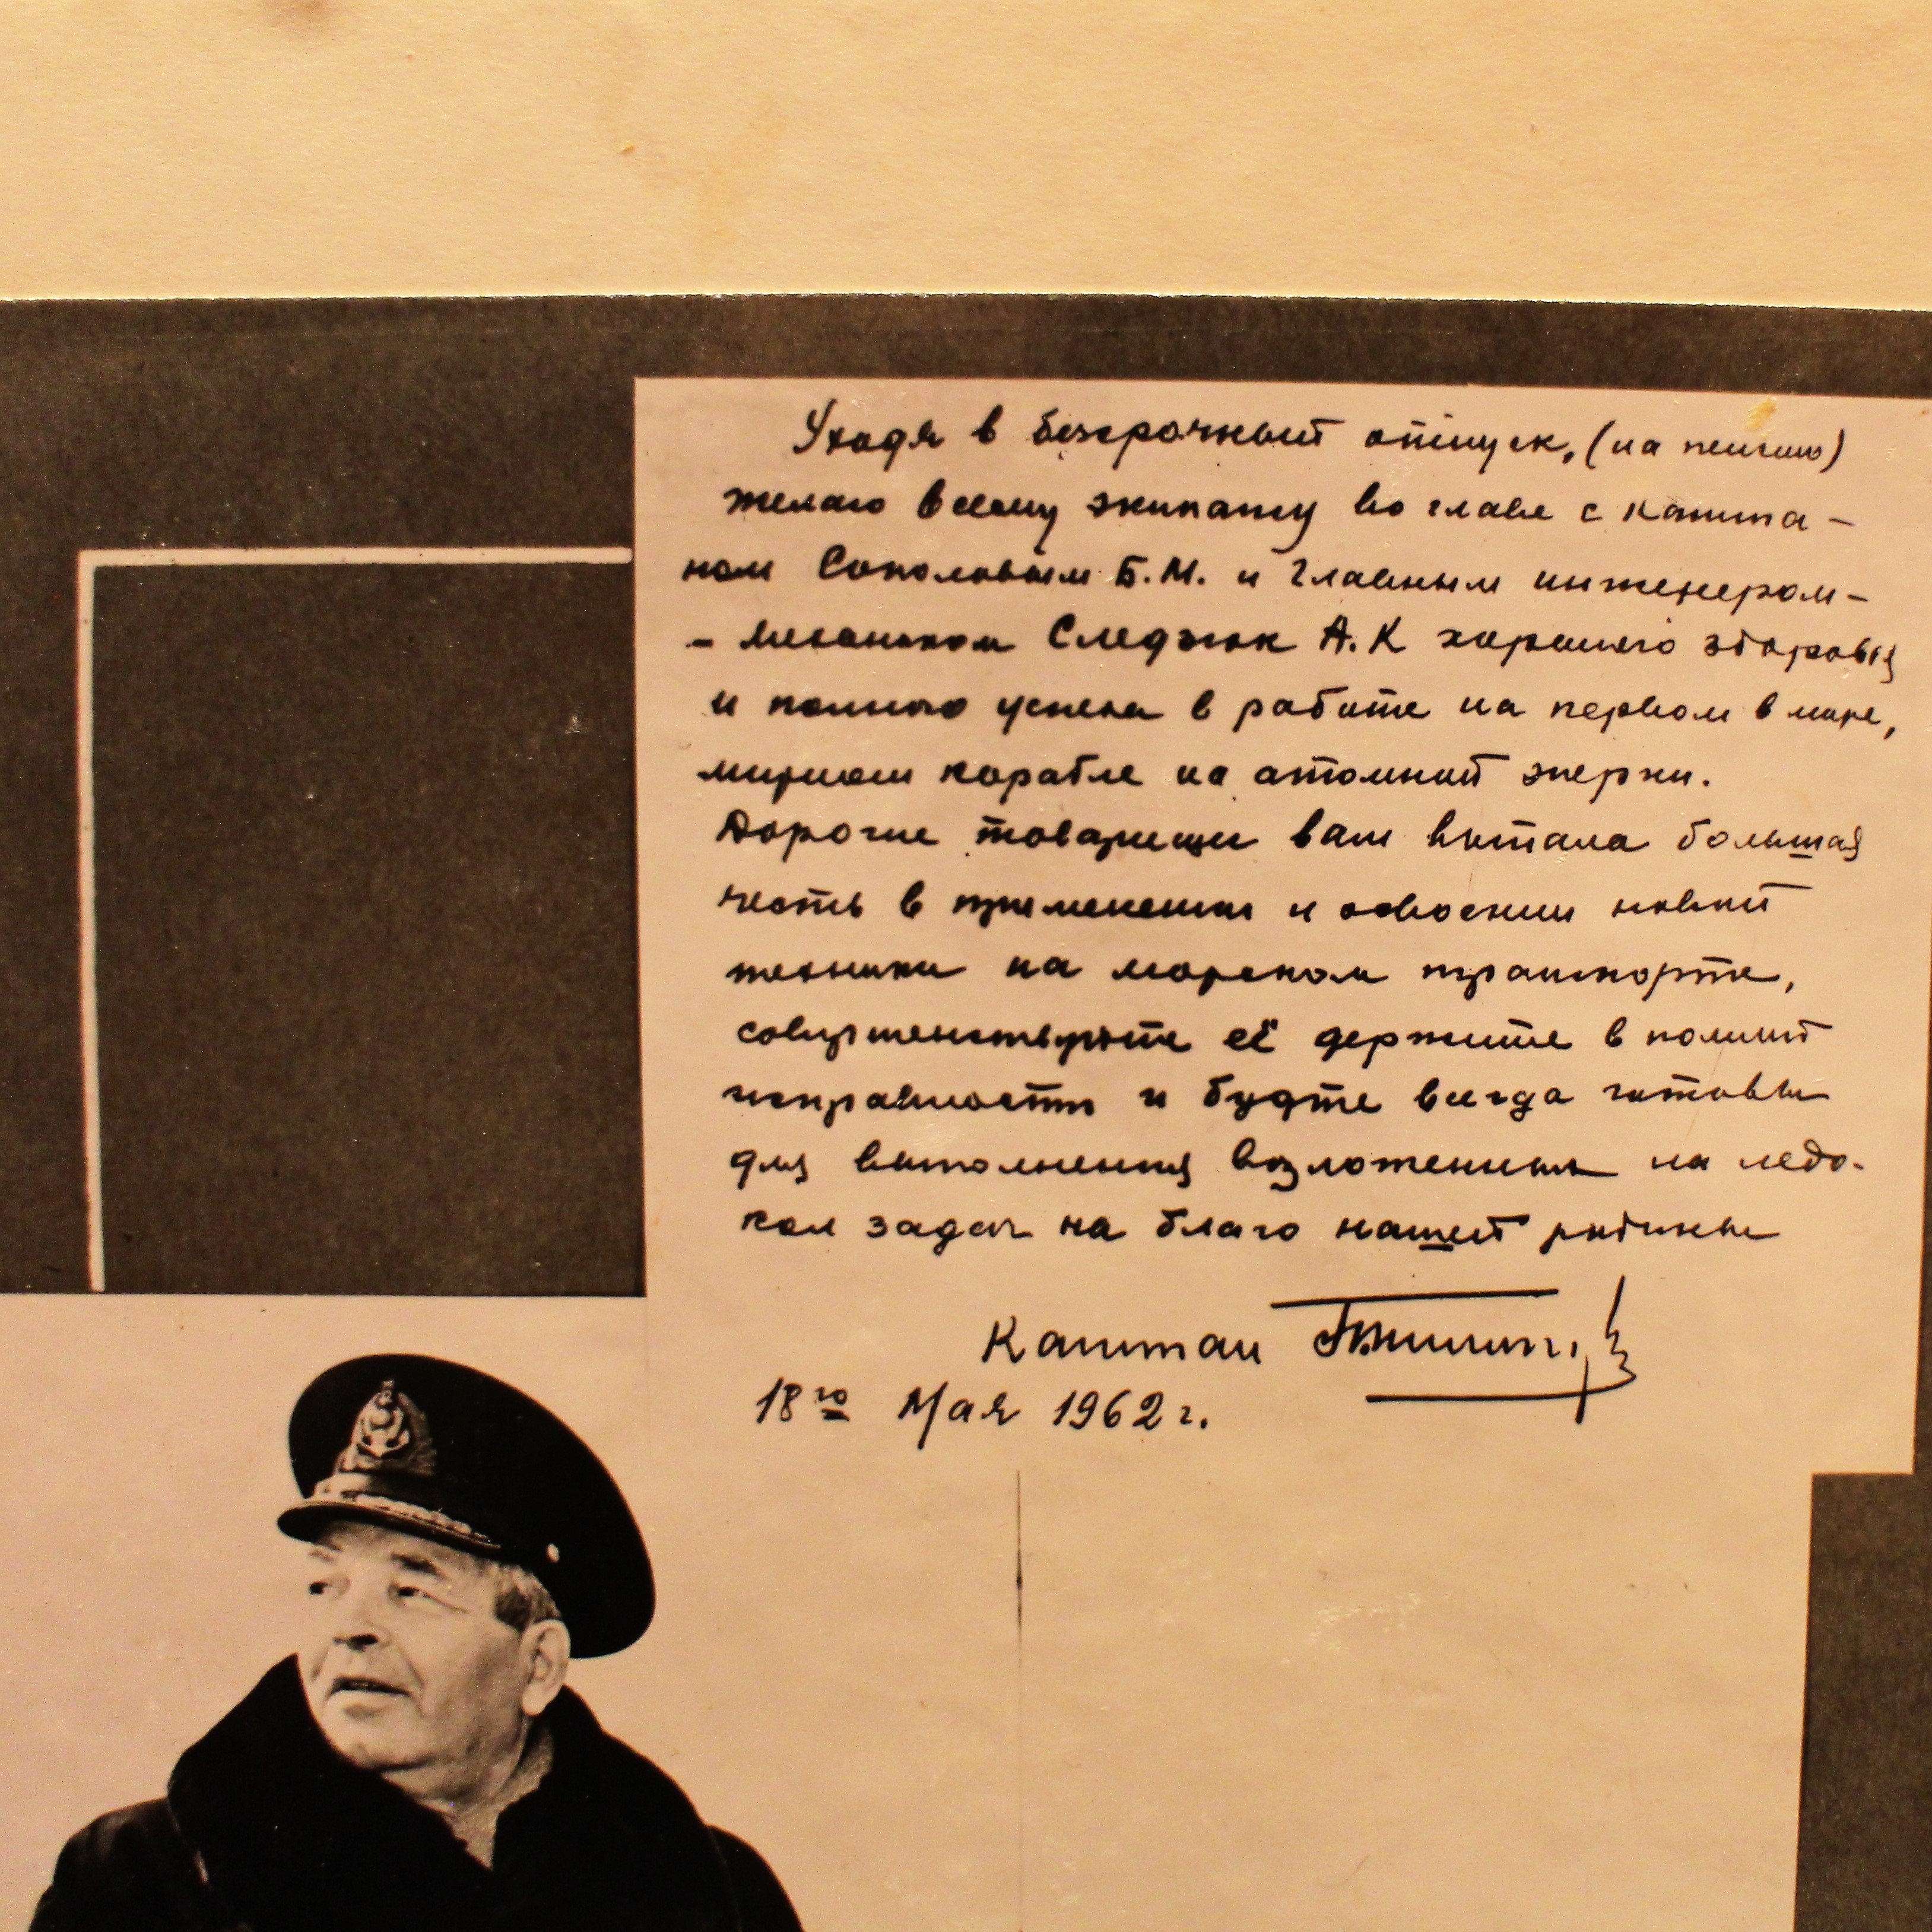 Уходя в безсрочный отпуск, (на пенсию)
желаю всему экипажу во главе с капита-
ном Соколовым Б.М. и главным инженером-
- механиком Следзюк А.К хорошего здоровья
и полного успеха в работе на первом в мире,
мирном корабле на атомной энергии.
Дорогие товарищи вам выпала большая
честь в применении и освоении новой
техники на морском транспорте,
совершенствуйте её держите в полной
исправности и будте всегда готовы
для выполнения возложенных на ледо-
кол задач на благо нашей родины
Капитан
18го Мая 1962 г.